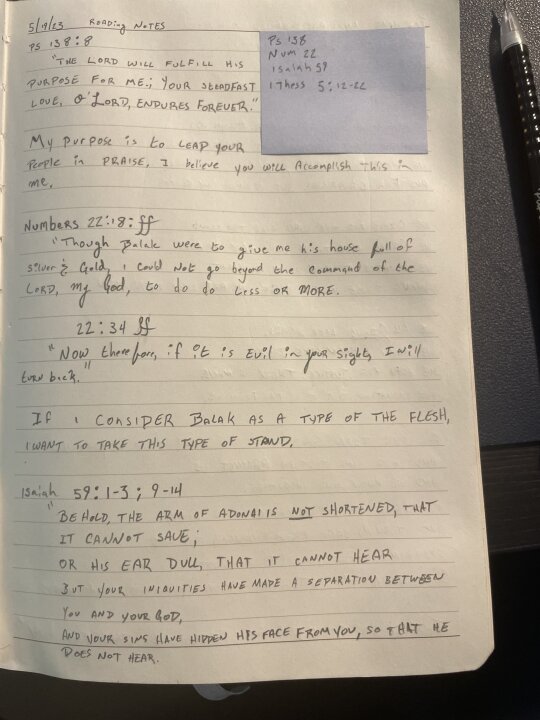 5/9/23 Reading Notes
PS 138:8
"THE LORD WILL FULFILL HIS
PURPOSE FOR ME; YOUR STEADFAST
LOVE, O'LORD, ENDURES FOREVER."
My purpose is to LEAD YOUR
People in PRAISE, I believe you will Accomplish This in
me.
Numbers 22:18:ff
"Though Balak were to give me his house full of
silver & Gold, I could Not go beyond the command of the
LORD, my God, to do do Less OR MORE.
22:34 ff
"Now therefore, if it is Evil in your sight, I will
turn back."
IF I CONSIDER BALAK AS A TYPE OF THE FLESH,
I WANT TO TAKE THIS TYPE OF STAND.
Isaiah 59:1-3; 9-14
"BEHOLD, THE ARM OF ADONAI IS NOT SHORTENED, THAT
IT CANNOT SAVE;
OR HIS EAR DULL, THAT IT CANNOT HEAR
BUT YOUR INIQUITIES HAVE MADE A SEPARATION BETWEEN
YOU AND YOUR GOD,
AND YOUR SINS HAVE HIDDEN HIS FACE FROM YOU, SO THAT HE
DOES NOT HEAR.
PS 138
Num 22
Isaiah 59
1 Thess 5:12-22